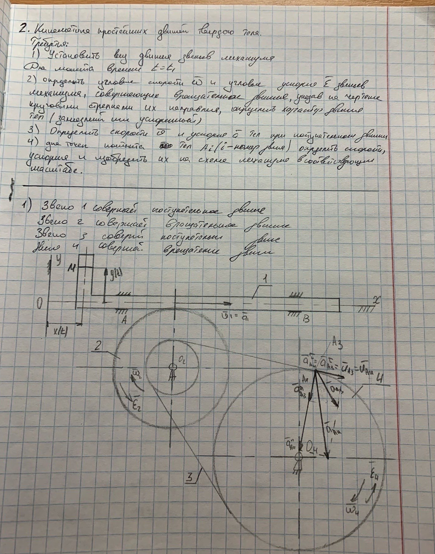 2. Кинематика простейших движений твердого тела.
Требуется:
1) Установить вид движения звеньев механизма
Для момента времени t=t₁
2) определить угловые скорости ω и угловые ускорения ε звеньев
механизма, совершающие вращательное движение, задав на чертеже
круговыми стрелками их направления, определить характер движения
тел (замедленный или ускоренный)
3) Определить скорости и ускорение a тел при поступательном движении
4) для точек контакта тел Ai (i-номер звена) определить скорости,
ускорения и изобразить их на схеме механизма в соответствующем
масштабе.
1) Звено 1 совершает поступательное движение
Звено 2 совершает вращательное движение
Звено 3 совершает поступательное движение
Звено 4 совершает вращательное движение
y
M
y(t)
1
O
x
A
B
x(t)
2
O₂
A₃
4
ε₂
ω₂
O₄
3
ε₄
ω₄